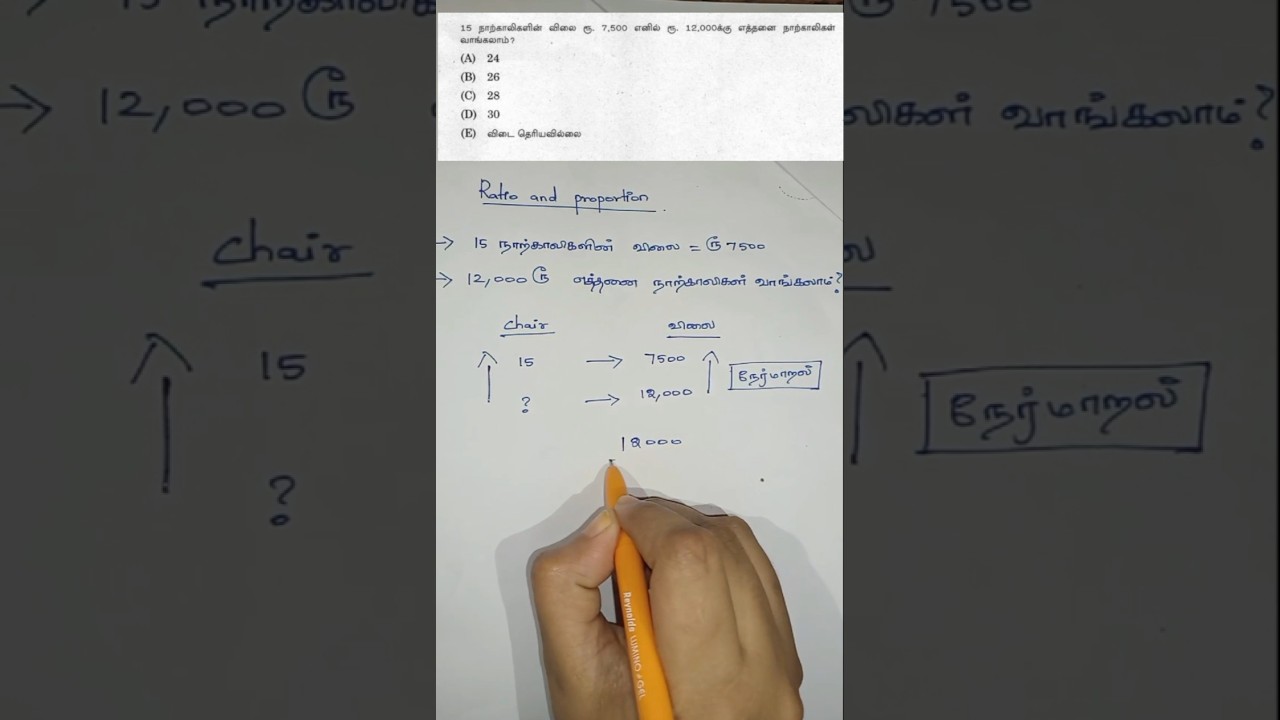 15 நாற்காலிகளின் விலை ரூ. 7,500 எனில் ரூ. 12,000க்கு எத்தனை நாற்காலிகள்
வாங்கலாம்?
(A) 24
(B) 26
(C) 28
(D) 30
(E) விடை தெரியவில்லை
Ratio and proportion
→ 15 நாற்காலிகளின் விலை = ரூ 7500
→ 12,000 ரூ எத்தனை நாற்காலிகள் வாங்கலாம்?
chair விலை
15 → 7500
நேர்மாறல்
? → 12,000
12000
Reynolds LUMINO GEL